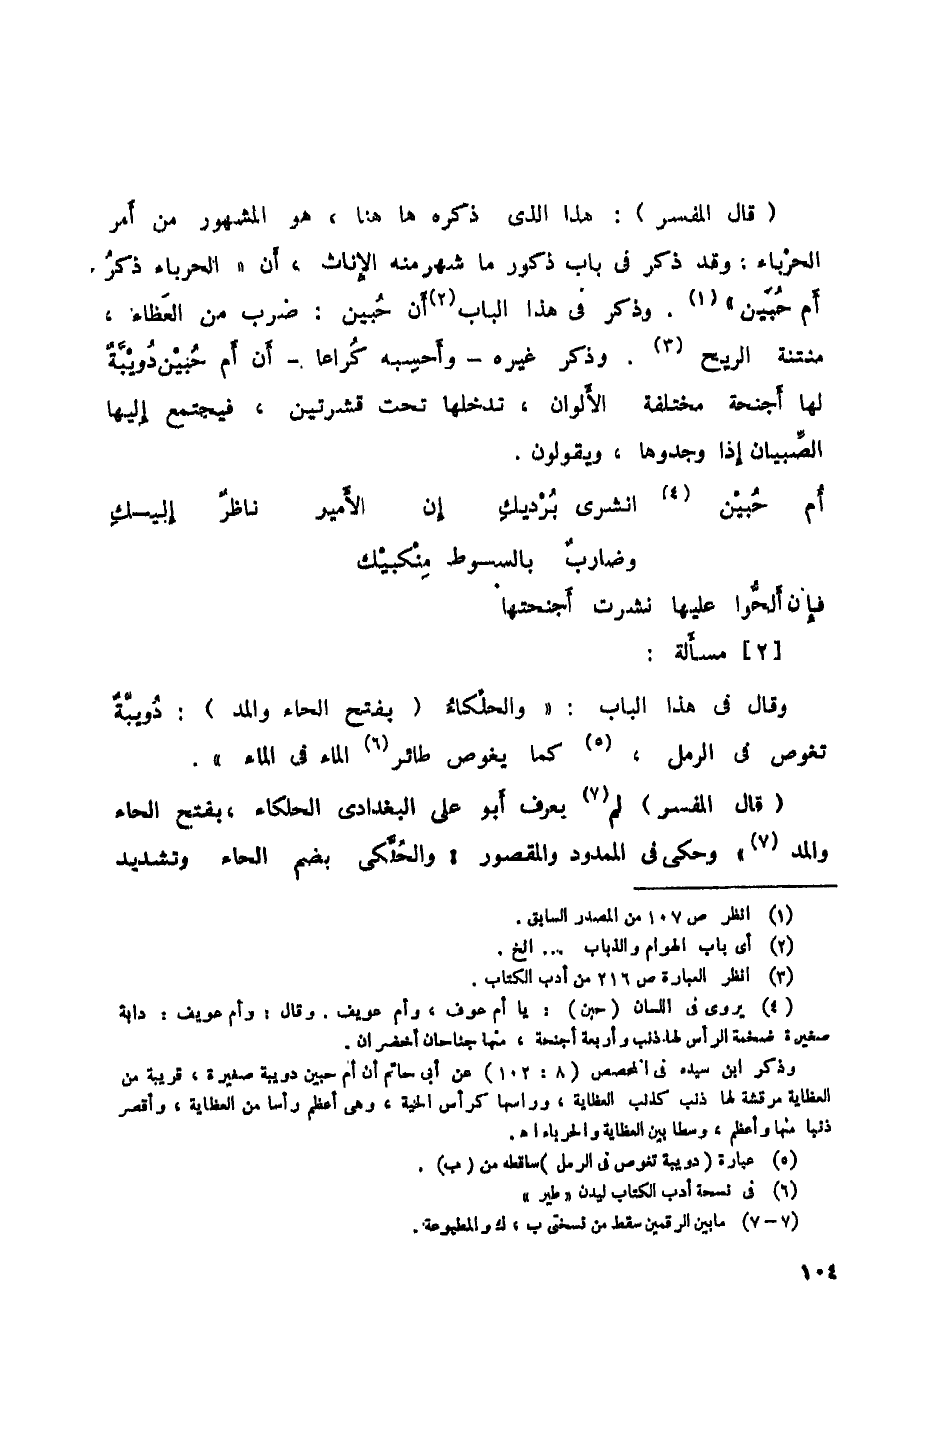 ( قال المفسر ) : هذا الذى ذكره ها هنا ، هو المشهور من أمر
الحرْباء : وقد ذكر فى باب ذكور ما شهرمنه الإناث ، أن « الحرباء ذكرُ
أم حُبَين » (١) . وذكر فى هذا الباب(٢)أن حُبين : ضرب من العَظاء ،
منتنة الريح (٣) . وذكر غيره – وأحسِبه كُراعا – أن أم حُبيْن دُويْبَّةٌ
لها أجنحة مختلفة الألوان ، تدخلها تحت قشرتين ، فيجتمع إليها
الصِّبيان إذا وجدوها ، ويقولون .
أُم حُبيْن (٤) انشرى بُرْديكِ إن الأَمير ناظرٌ إليـكِ
وضاربٌ بالسـوط مِنْكبيْك
فإن ألحُّوا عليها نشرت أجنحتها
[٢] مسألة :
وقال فى هذا الباب : « والحلْكاءُ ( بفتح الحاء والمد ) : دُويبَّةٌ
تغوص فى الرمل ، (٥) كما يغوص طائر(٦) الماء فى الماء » .
( قال المفسر ) لم(٧) يعرف أبو على البغدادى الحلكاء ،بفتح الحاء
والمد (٧)» وحكى فى الممدود والمقصور : والحُلَّكى بضم الحاء وتشديد
(١) انظر ص ١٠٧ من المصدر السابق .
(٢) أى باب الهوام والذباب ... الخ .
(٣) انظر العبارة ص ٢١٦ من أدب الكتاب .
(٤) يروى فى اللسان (حبن) : يا أم عوف ، وأم عويف . وقال : وأم عويف : دابة
صغيرة ضخمة الرأس لها ذنب وأربعة أجنحة ، منها جناحان أخضران .
وذكر ابن سيده فى المخصص (٨ : ١٠٢) عن أبى حاتم أن أم حبين دويبة صغيرة ، قريبة من
العظاية مرقشة لها ذنب كذنب العظاية ، وراسها كرأس الحية ، وهى أعظم رأسا من العظاية ، وأقصر
ذنبا منها وأعظم ، وسطا بين العظاية والحرباء ا ه .
(٥) عبارة (دويبة تغوص فى الرمل )ساقطه من (ب) .
(٦) فى نسحة أدب الكتاب ليدن « طير »
(٧–٧) مابين الرقمين سقط من نسختى ب ، ك والمطبوعة .
١٠٤